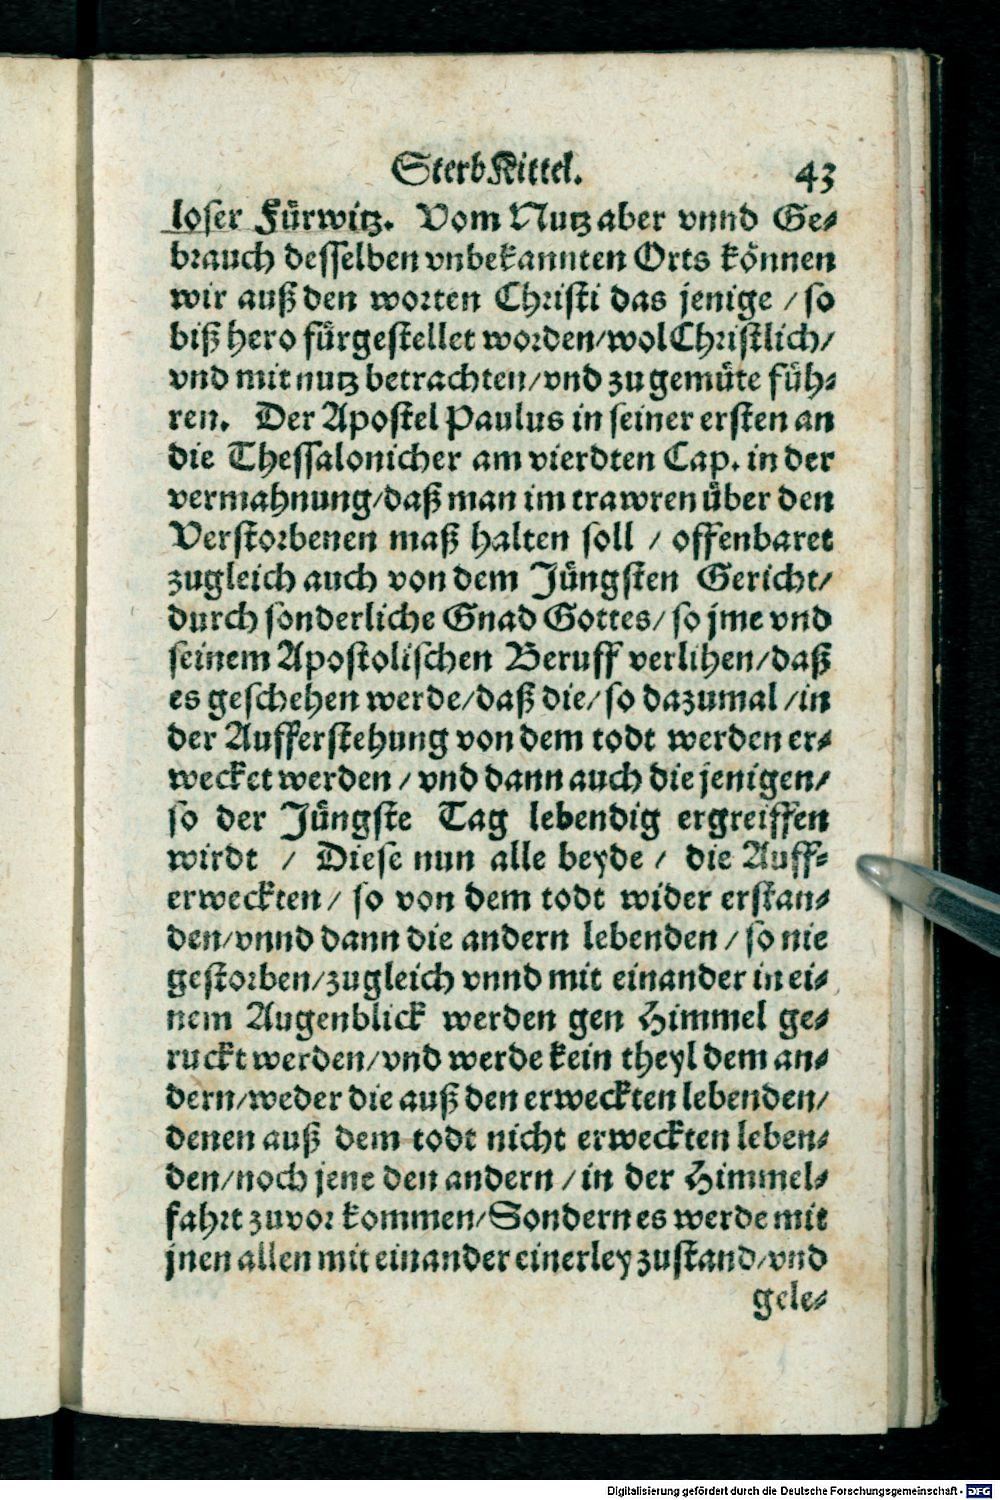 SterbKittel. 43
loser Fürwitz. Vom Nutz aber vnnd Ge-
brauch desselben vnbekannten Orts können
wir auß den worten Christi das jenige / so
biß hero fürgestellet worden/wol Christlich/
vnd mit nutz betrachten/vnd zu gemüte füh-
ren. Der Apostel Paulus in seiner ersten an
die Thessalonicher am vierdten Cap. in der
vermahnung/daß man im trawren über den
Verstorbenen maß halten soll / offenbaret
zugleich auch von dem Jüngsten Gericht/
durch sonderliche Gnad Gottes/ so jme vnd
seinem Apostolischen Beruff verlihen/daß
es geschehen werde/daß die/ so dazumal /in
der Aufferstehung von dem todt werden er-
wecket werden / vnd dann auch die jenigen/
so der Jüngste Tag lebendig ergreiffen
wirdt / Diese nun alle beyde / die Auff-
erweckten / so von dem todt wider erstan-
den/vnnd dann die andern lebenden / so nie
gestorben/zugleich vnnd mit einander in ei-
nem Augenblick werden gen Himmel ge-
ruckt werden/vnd werde kein theyl dem an-
dern/weder die auß den erweckten lebenden/
denen auß dem todt nicht erweckten leben-
den/noch jene den andern / in der Himmel-
fahrt zuvor kommen/Sondern es werde mit
jnen allen mit einander einerley zustand/vnd
gele-
Digitalisierung gefördert durch die Deutsche Forschungsgemeinschaft - DFG